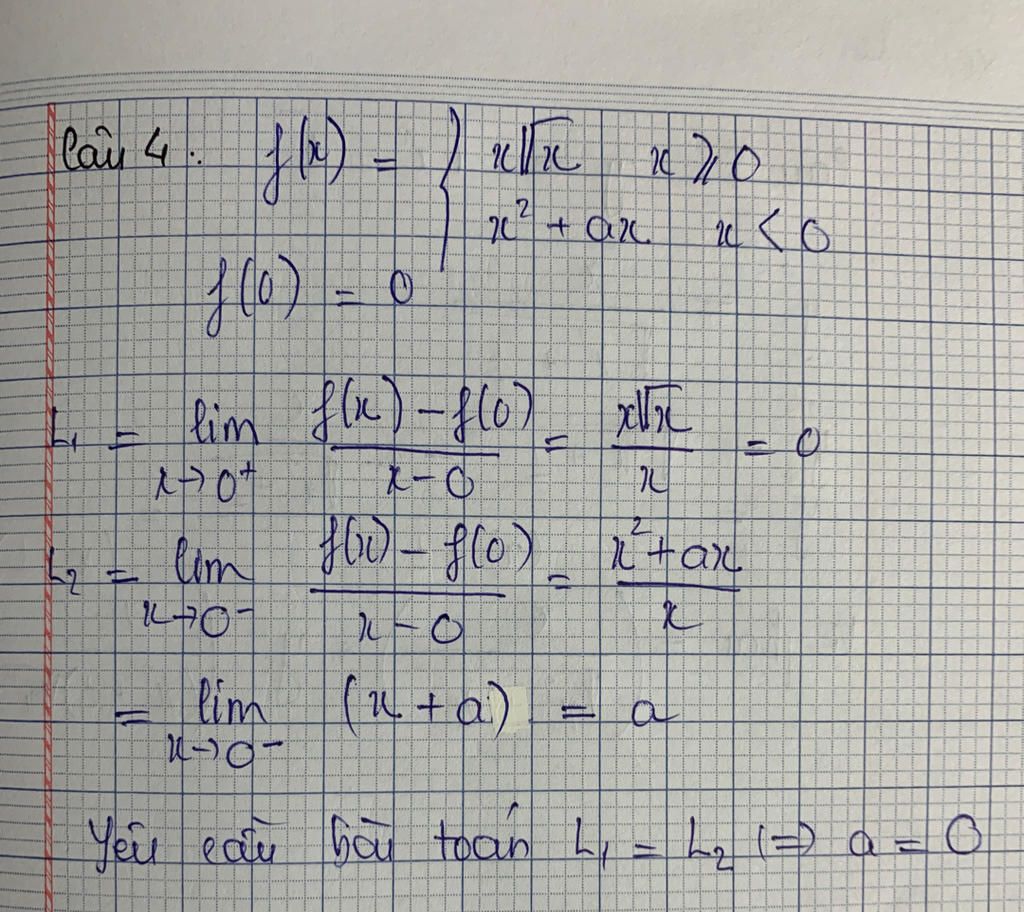 Câu 4: f(x) = { x√x x ⩾ 0
x² + ax x < 0
f(0) = 0
L₁ = lim x→0⁺ (f(x) - f(0))/(x - 0) = (x√x)/x = 0
L₂ = lim x→0⁻ (f(x) - f(0))/(x - 0) = (x² + ax)/x
= lim x→0⁻ (x + a) = a
Yêu cầu bài toán L₁ = L₂ (=) a = 0